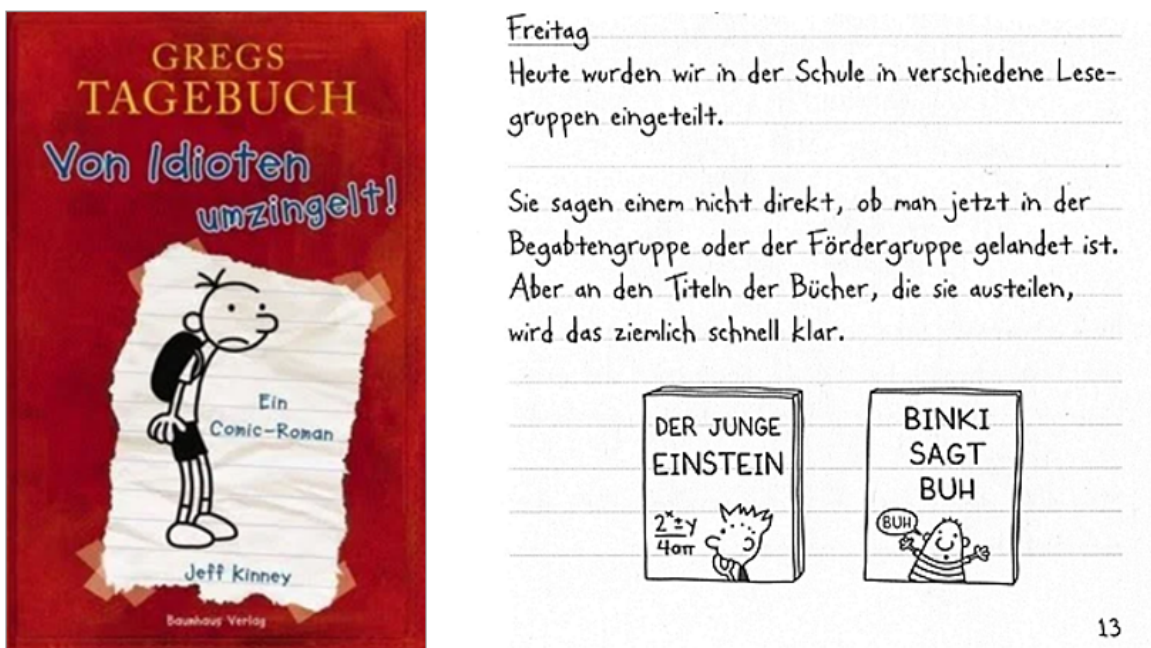 GREGS
TAGEBUCH
Von Idioten
umzingelt!
Ein
Comic-Roman
Jeff Kinney
Baumhaus Verlag
Freitag
Heute wurden wir in der Schule in verschiedene Lese-
gruppen eingeteilt.
Sie sagen einem nicht direkt, ob man jetzt in der
Begabtengruppe oder der Fördergruppe gelandet ist.
Aber an den Titeln der Bücher, die sie austeilen,
wird das ziemlich schnell klar.
DER JUNGE
EINSTEIN
2ˣ±y
4οπ
BINKI
SAGT
BUH
BUH
13